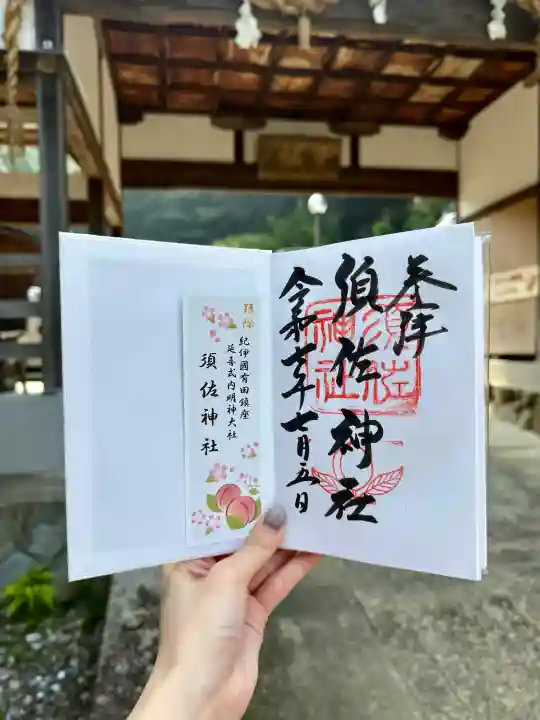 奉拝
須佐神社
須佐
神社
令和六年七月五日
紀伊國有田鎮座
延喜式内明神大社
須佐神社